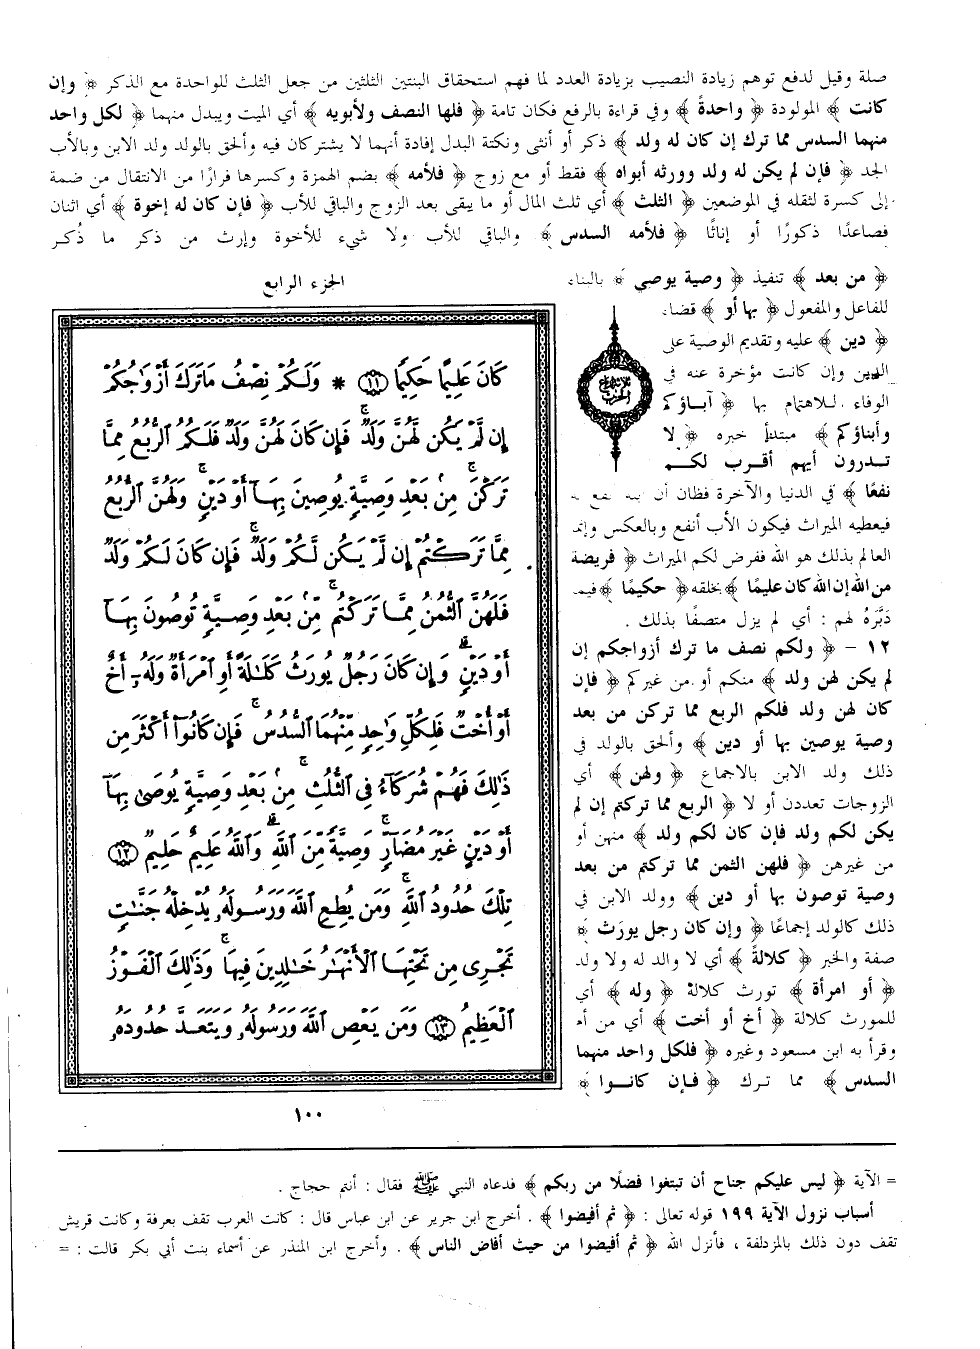 صلة وقيل لدفع توهم زيادة النصيب بزيادة العدد لما فهم استحقاق البنتين الثلثين من جعل الثلث للواحدة مع الذكر ﴿ وإن
كانت ﴾ المولودة ﴿ واحدةً ﴾ وفي قراءة بالرفع فكان تامة ﴿ فلها النصف ولأبويه ﴾ أي الميت ويبدل منهما ﴿ لكل واحد
منهما السدس مما ترك إن كان له ولد ﴾ ذكر أو أنثى ونكتة البدل إفادة أنهما لا يشتركان فيه وألحق بالولد ولد الابن وبالأب
الجد ﴿ فإن لم يكن له ولد وورثه أبواه ﴾ فقط أو مع زوج ﴿ فلأمه ﴾ بضم الهمزة وكسرها فرارًا من الانتقال من ضمة
إلى كسرة لثقله في الموضعين ﴿ الثلث ﴾ أي ثلث المال أو ما يبقى بعد الزوج والباقي للأب ﴿ فإن كان له إخوة ﴾ أي اثنان
فصاعدًا ذكورًا أو إناثًا ﴿ فلأمه السدس ﴾ والباقي للأب ولا شيء للأخوة وإرث من ذكر ما ذُكر
﴿ من بعد ﴾ تنفيذ ﴿ وصية يوصي ﴾ بالبناء
للفاعل والمفعول ﴿ بها أو ﴾ قضاء
﴿ دين ﴾ عليه وتقديم الوصية على
الدين وإن كانت مؤخرة عنه في
الوفاء للاهتمام بها ﴿ آباؤكم
وأبناؤكم ﴾ مبتدأ خبره ﴿ لا
تدرون أيهم أقرب لكم
نفعًا ﴾ في الدنيا والآخرة فظان أن
فيعطيه الميراث فيكون الأب أنفع وبالعكس وإنما
العالم بذلك هو الله ففرض لكم الميراث ﴿ فريضة
من الله إن الله كان عليمًا ﴾ بخلقه ﴿ حكيمًا ﴾ فيما
دَبَّرَهُ لهم : أي لم يزل متصفًا بذلك .
١٢ – ﴿ ولكم نصف ما ترك أزواجكم إن
لم يكن لهن ولد ﴾ منكم أو من غيركم ﴿ فإن
كان لهن ولد فلكم الربع مما تركن من بعد
وصية يوصين بها أو دين ﴾ وألحق بالولد في
ذلك ولد الابن بالاجماع ﴿ ولهن ﴾ أي
الزوجات تعددن أو لا ﴿ الربع مما تركتم إن لم
يكن لكم ولد فإن كان لكم ولد ﴾ منهن أو
من غيرهن ﴿ فلهن الثمن مما تركتم من بعد
وصية توصون بها أو دين ﴾ وولد الابن في
ذلك كالولد إجماعًا ﴿ وإن كان رجل يورَث ﴾
صفة والخبر ﴿ كلالةً ﴾ أي لا والد له ولا ولد
﴿ أو امرأة ﴾ تورث كلالة ﴿ وله ﴾ أي
للمورث كلالة ﴿ أخ أو أخت ﴾ أي من أم
وقرأ به ابن مسعود وغيره ﴿ فلكل واحد منهما
السدس ﴾ مما ترك ﴿ فإن كانوا ﴾
الجزء الرابع
كَانَ عَلِيمًا حَكِيمًا ١١ * وَلَكُمْ نِصْفُ مَا تَرَكَ أَزْوَٰجُكُمْ
إِن لَّمْ يَكُن لَّهُنَّ وَلَدٌ ۚ فَإِن كَانَ لَهُنَّ وَلَدٌ فَلَكُمُ ٱلرُّبُعُ مِمَّا
تَرَكْنَ ۚ مِنۢ بَعْدِ وَصِيَّةٍ يُوصِينَ بِهَآ أَوْ دَيْنٍ ۚ وَلَهُنَّ ٱلرُّبُعُ
مِمَّا تَرَكْتُمْ إِن لَّمْ يَكُن لَّكُمْ وَلَدٌ ۚ فَإِن كَانَ لَكُمْ وَلَدٌ
فَلَهُنَّ ٱلثُّمُنُ مِمَّا تَرَكْتُم ۚ مِّنۢ بَعْدِ وَصِيَّةٍ تُوصُونَ بِهَآ
أَوْ دَيْنٍ ۗ وَإِن كَانَ رَجُلٌ يُورَثُ كَلَٰلَةً أَوِ ٱمْرَأَةٌ وَلَهُۥٓ أَخٌ
أَوْ أُخْتٌ فَلِكُلِّ وَٰحِدٍ مِّنْهُمَا ٱلسُّدُسُ ۚ فَإِن كَانُوٓا۟ أَكْثَرَ مِن
ذَٰلِكَ فَهُمْ شُرَكَآءُ فِى ٱلثُّلُثِ ۚ مِنۢ بَعْدِ وَصِيَّةٍ يُوصَىٰ بِهَآ
أَوْ دَيْنٍ غَيْرَ مُضَآرٍّ ۚ وَصِيَّةً مِّنَ ٱللَّهِ ۗ وَٱللَّهُ عَلِيمٌ حَلِيمٌ ١٢
تِلْكَ حُدُودُ ٱللَّهِ ۚ وَمَن يُطِعِ ٱللَّهَ وَرَسُولَهُۥ يُدْخِلْهُ جَنَّٰتٍ
تَجْرِى مِن تَحْتِهَا ٱلْأَنْهَٰرُ خَٰلِدِينَ فِيهَا ۚ وَذَٰلِكَ ٱلْفَوْزُ
ٱلْعَظِيمُ ١٣ وَمَن يَعْصِ ٱللَّهَ وَرَسُولَهُۥ وَيَتَعَدَّ حُدُودَهُۥ
١٠٠
= الآية ﴿ ليس عليكم جناح أن تبتغوا فضلًا من ربكم ﴾ فدعاه النبي ﷺ فقال : أنتم حجاج .
أسباب نزول الآية ١٩٩ قوله تعالى : ﴿ ثم أفيضوا ﴾ . أخرج ابن جرير عن ابن عباس قال : كانت العرب تقف بعرفة وكانت قريش
تقف دون ذلك بالمزدلفة ، فأنزل الله ﴿ ثم أفيضوا من حيث أفاض الناس ﴾ . وأخرج ابن المنذر عن أسماء بنت أبي بكر قالت : =